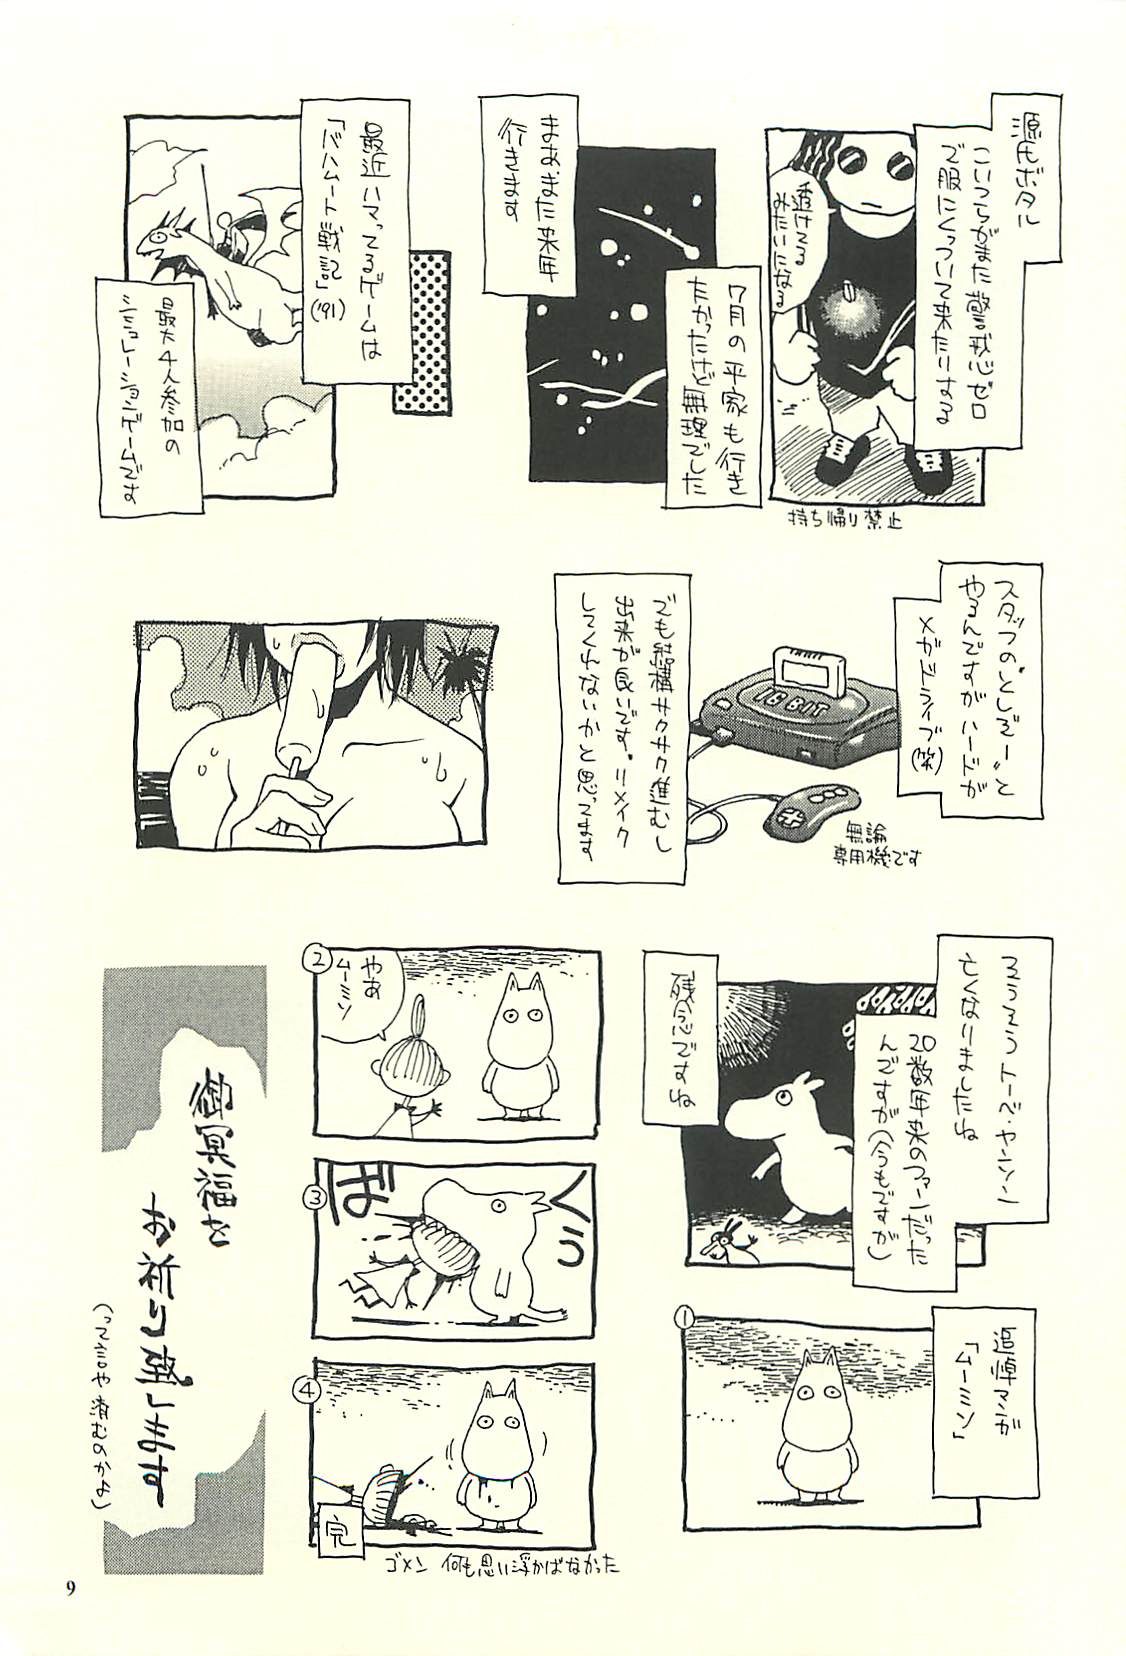 源氏ボタル
こいつらがまた警戒心ゼロ
で服にくっついて来たりする
透けてる
みたいになる
持ち帰り禁止
7月の平家も行き
たかったけど無理でした
まあまた来年
行きます
最近ハマってるゲームは
「バハムート戦記」
('91)
最大4人参加の
シミュレーションゲームです
スタッフの"としぞー"と
やるんですがハードが
メガドライブ(笑)
16 BIT
無論
専用機です
でも結構サクサク進むし
出来が良いです。リメイク
してくれないかと思ってます
そうそうトーベ・ヤンソン
亡くなりましたね
20数年来のファンだった
んですが(今もですが)
残念ですね
追悼マンガ
「ムーミン」
①
②
やあ
ムーミン
③
くぅ
ぼ
④
完
ゴメン 何も思い浮かばなかった
御冥福を
お祈り致します
(って言や済むのかよ)
9